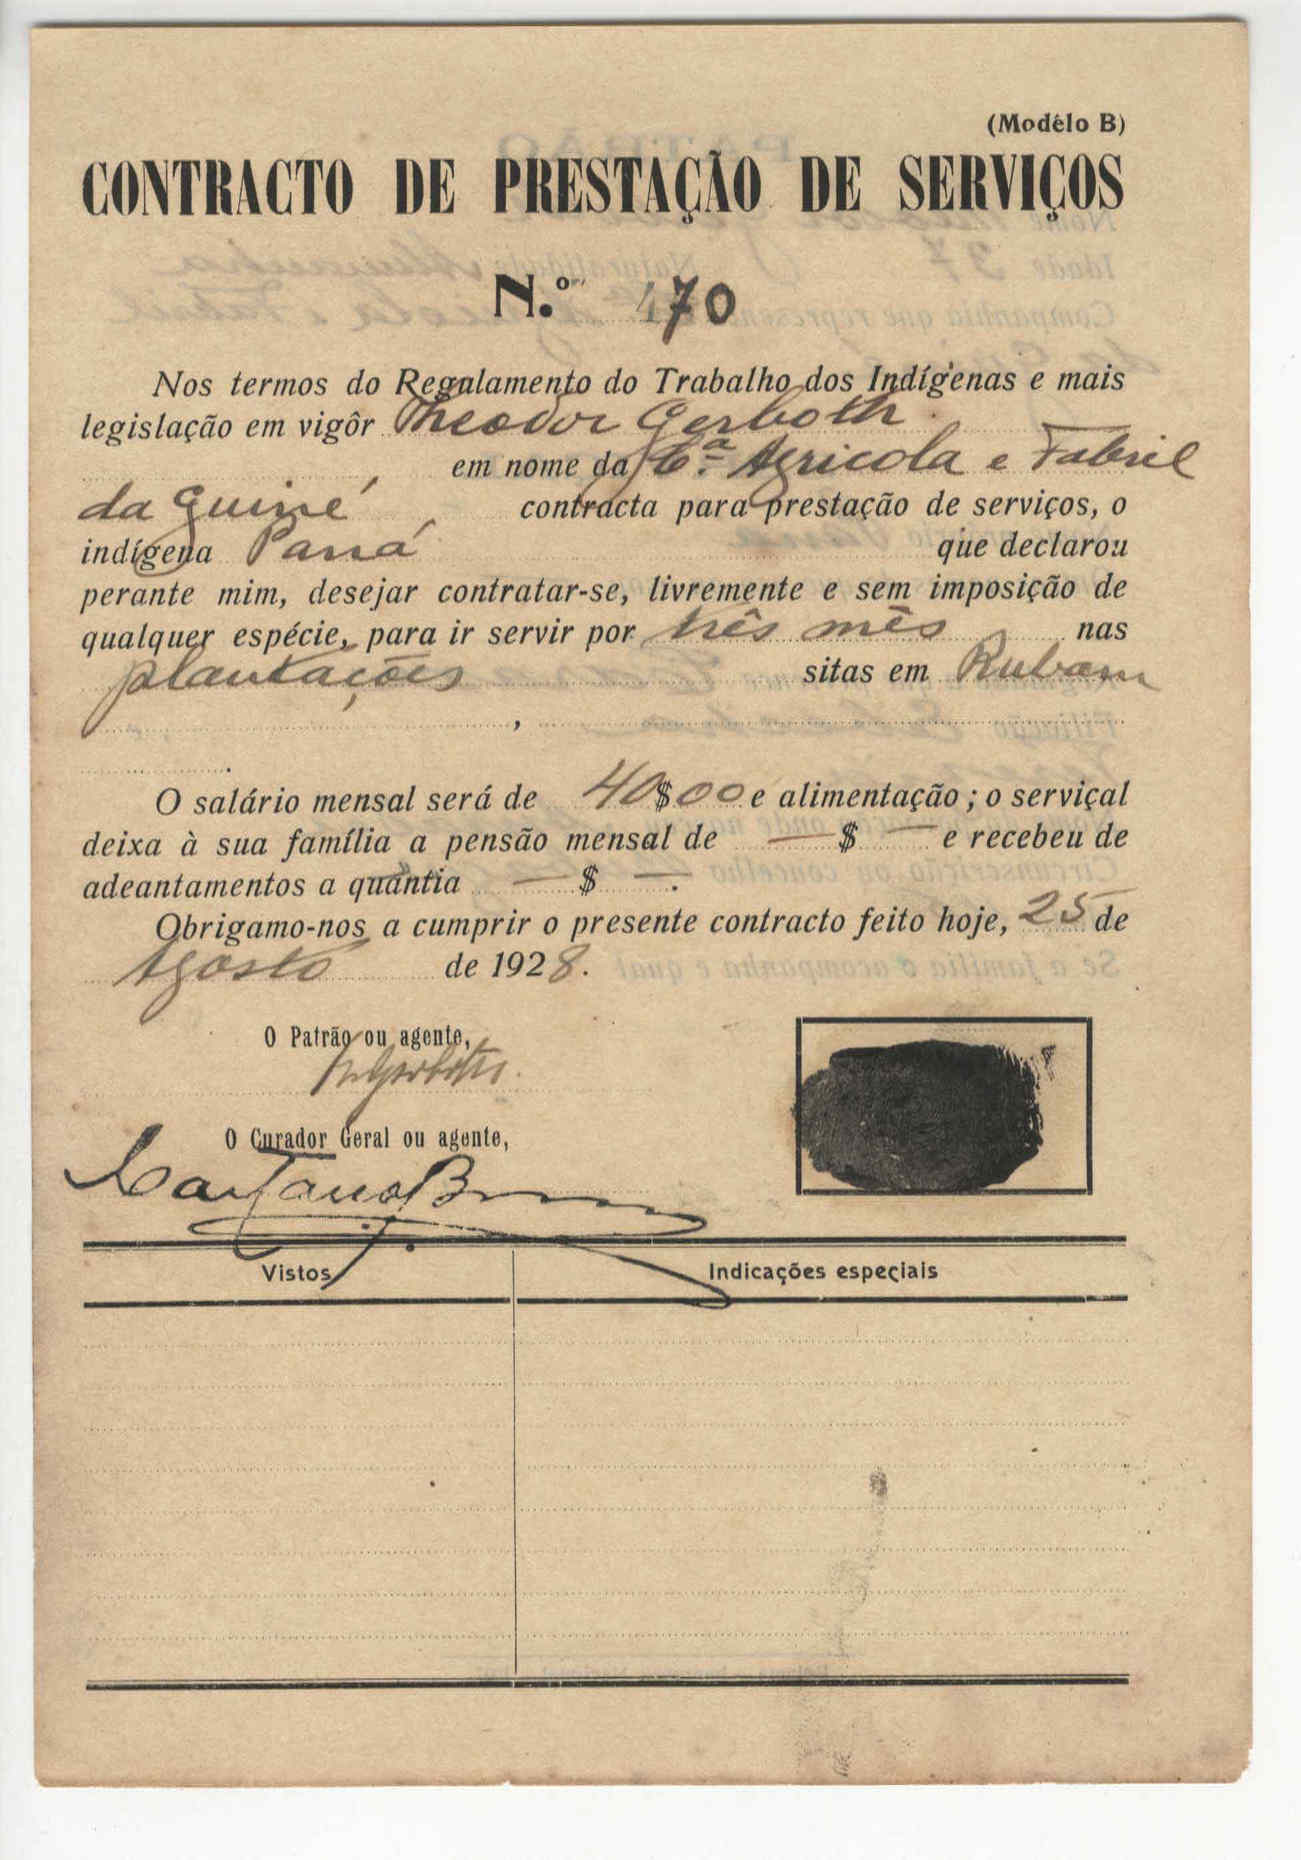 (Modêlo B)
CONTRACTO DE PRESTAÇÃO DE SERVIÇOS
N.º 470
Nos termos do Regulamento do Trabalho dos Indígenas e mais
legislação em vigôr Theodor Gerboth
em nome da C.ª Agricola e Fabril
da Guiné contracta para prestação de serviços, o
indígena Paná que declarou
perante mim, desejar contratar-se, livremente e sem imposição de
qualquer espécie, para ir servir por três mês nas
plantações sitas em Rubam
,
.
O salário mensal será de 40$00 e alimentação; o serviçal
deixa à sua família a pensão mensal de —$— e recebeu de
adeantamentos a quantia —$—.
Obrigamo-nos a cumprir o presente contracto feito hoje, 25 de
Agosto de 1928.
O Patrão ou agente,
Gerboth
O Curador Geral ou agente,
Vistos
Indicações especiais